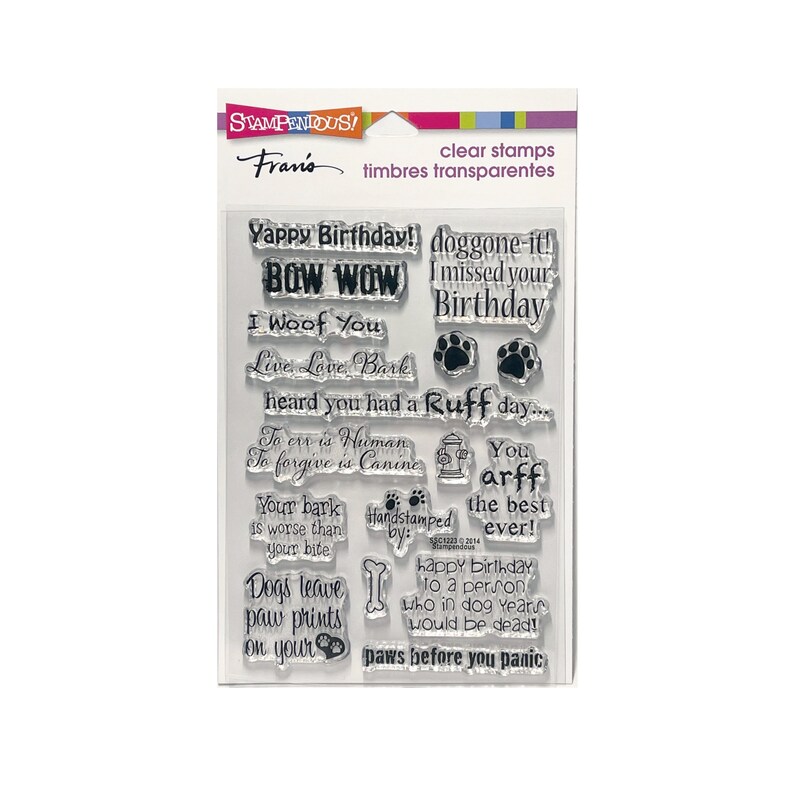 STAMPENDOUS!
Fran's
clear stamps
timbres transparentes
Yappy Birthday!
BOW WOW
doggone-it!
I missed your
Birthday
I Woof You
Live, Love, Bark
heard you had a Ruff day...
To err is Human,
To forgive is Canine
You
arff
the best
ever!
Your bark
is worse than
your bite
Handstamped
by:
SSC1223 © 2014
Stampendous
Dogs leave
paw prints
on your
happy birthday
to a person
who in dog years
would be dead!
paws before you panic